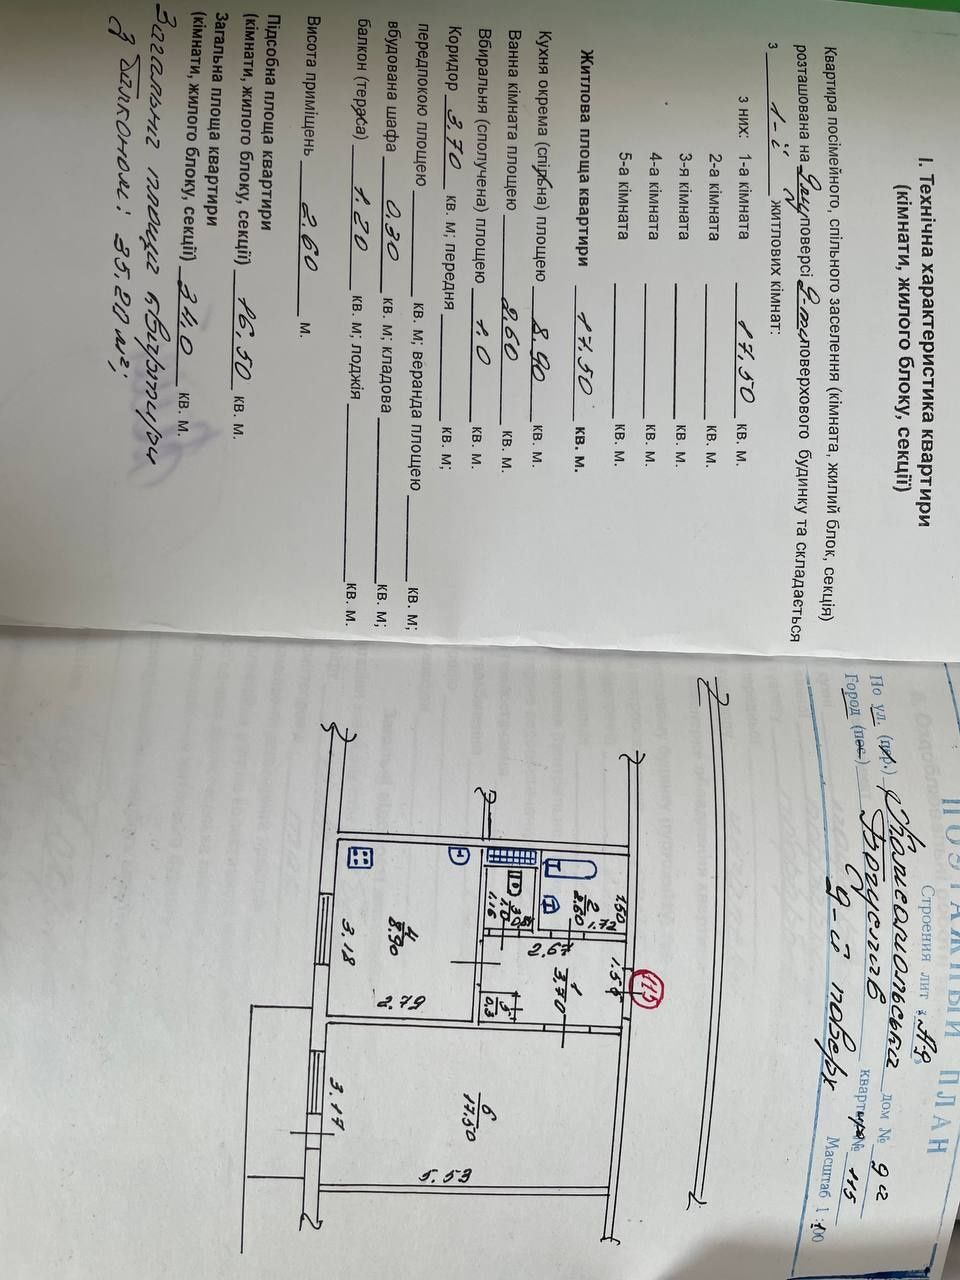 І. Технічна характеристика квартири
(кімнати, жилого блоку, секції)
Квартира посімейного, спільного заселення (кімната, жилий блок, секція)
розташована на 9му поверсі 9-ти поверхового будинку та складається
з 1-ї житлових кімнат:
з них: 1-а кімната 17,50 кв. м.
2-а кімната кв. м.
3-я кімната кв. м.
4-а кімната кв. м.
5-а кімната кв. м.
Житлова площа квартири 17,50 кв. м.
Кухня окрема (спільна) площею 8.90 кв. м.
Ванна кімната площею 2,60 кв. м.
Вбиральня (сполучена) площею 1.0 кв. м.
Коридор 3.70 кв. м; передня кв. м;
передпокою площею кв. м; веранда площею кв. м;
вбудована шафа 0,30 кв. м; кладова кв. м;
балкон (терасa) 1.20 кв. м; лоджія кв. м.
Висота приміщень 2.60 м.
Підсобна площа квартири
(кімнати, жилого блоку, секції) 16,50 кв. м.
Загальна площа квартири
(кімнати, жилого блоку, секції) 34,0 кв. м.
Загальна площа квартири
з балконом: 35,20 м²;
ПОЭТАЖНЫЙ ПЛАН
Строения лит "А-9"
По ул. (пр.) дом № 9а
Город (пос.) Богуслав квартира № 115
9-й поверх Масштаб 1:100
115
1.50
2
2.60
1.72
1.54
2.67
1
3.70
3
1.0
1.16
5
0,3
4
8.90
3.18
2.79
6
17.50
3.17
5.53